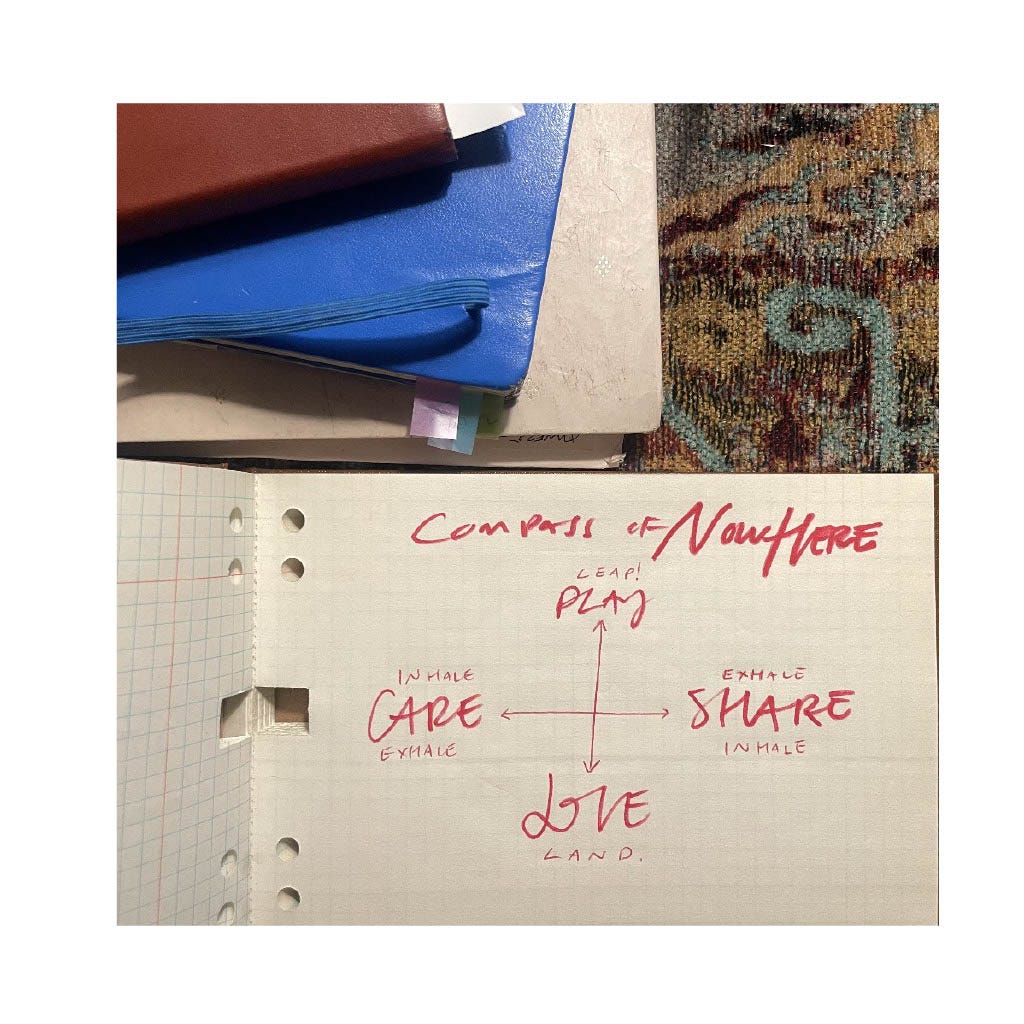 Compass of NowHere
LEAP!
PLAY
INHALE
CARE
EXHALE
EXHALE
SHARE
INHALE
LOVE
LAND.